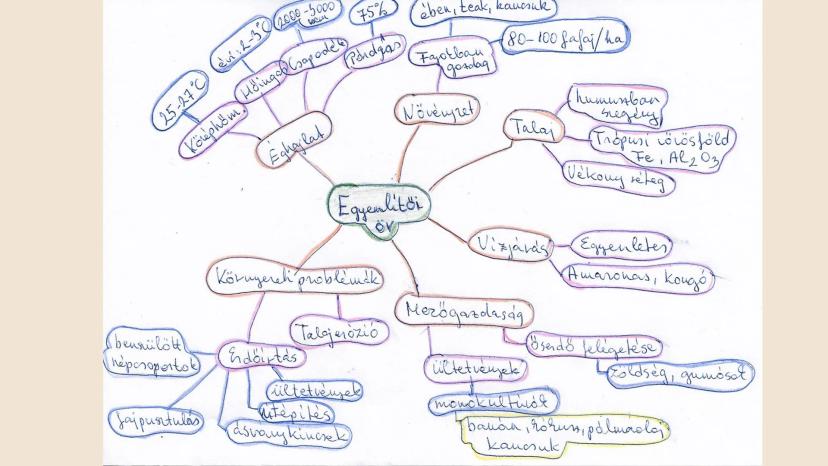 ében, teak, kaucsuk
80-100 fafaj/ha
Fajokban
gazdag
Növényzet
75%
Páradgás
2000-3000
mm
Csapadék
évi: 2-3°C
Hőingás
25-27°C
Középhőm.
Éghajlat
Talaj
humuszban
szegény
Trópusi vörösföld
Fe, Al2O3
Vékony réteg
Egyenlítői
öv
Vízjárás
Egyenletes
Amazonas, Kongó
Környezeti problémák
Talajerózió
Erdőirtás
benszülött
népcsoportok
fajpusztulás
ültetvények
útépítés
ásványkincsek
Mezőgazdaság
Őserdő felégetése
zöldség, gumósok
ültetvények
monokultúrák
banán,
kaucsuk